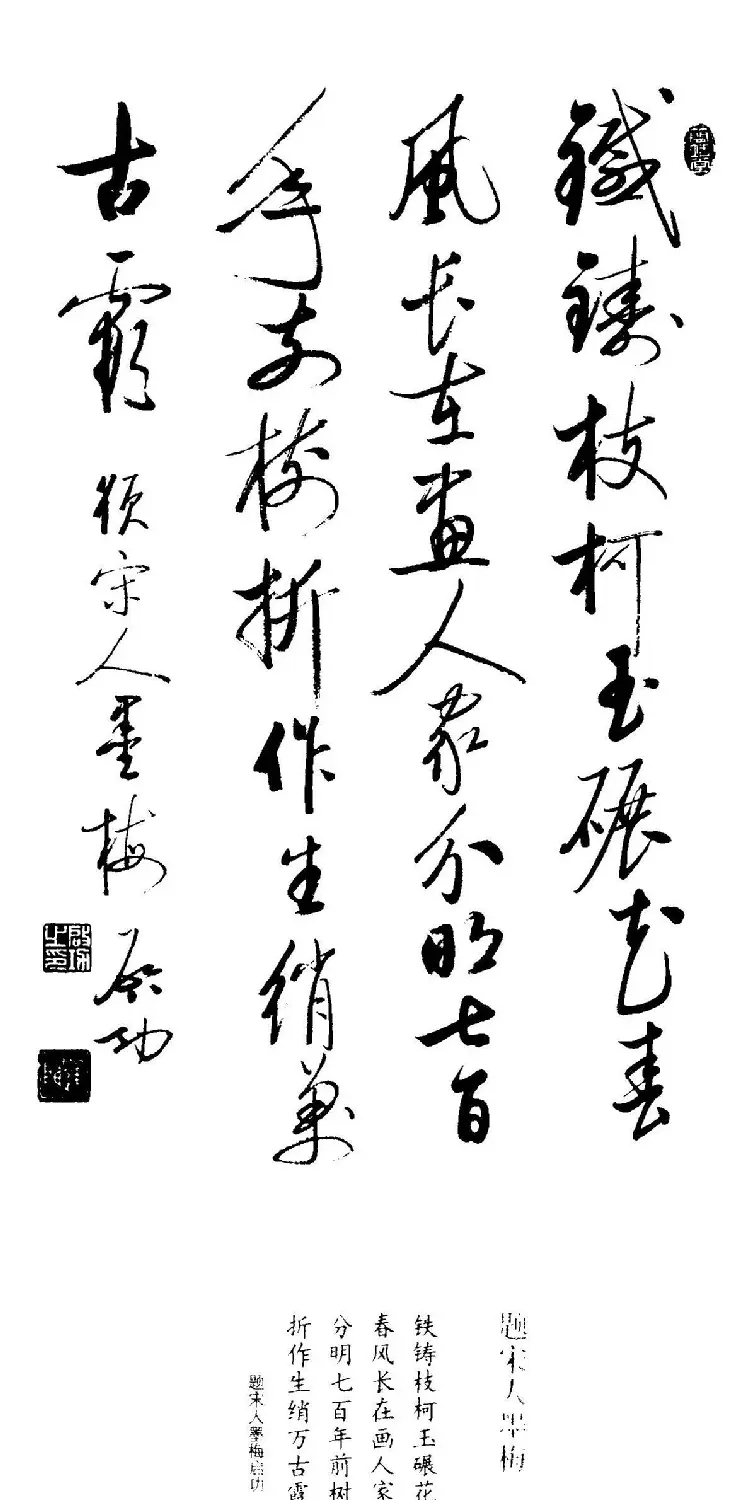 鐵鑄枝柯玉碾花春
風長在畫人家分明七百
年前樹折作生綃萬
古霞
題宋人墨梅 启功
啟功之印
题宋人墨梅
铁铸枝柯玉碾花
春风长在画人家
分明七百年前树
折作生绡万古霞
题宋人墨梅启功